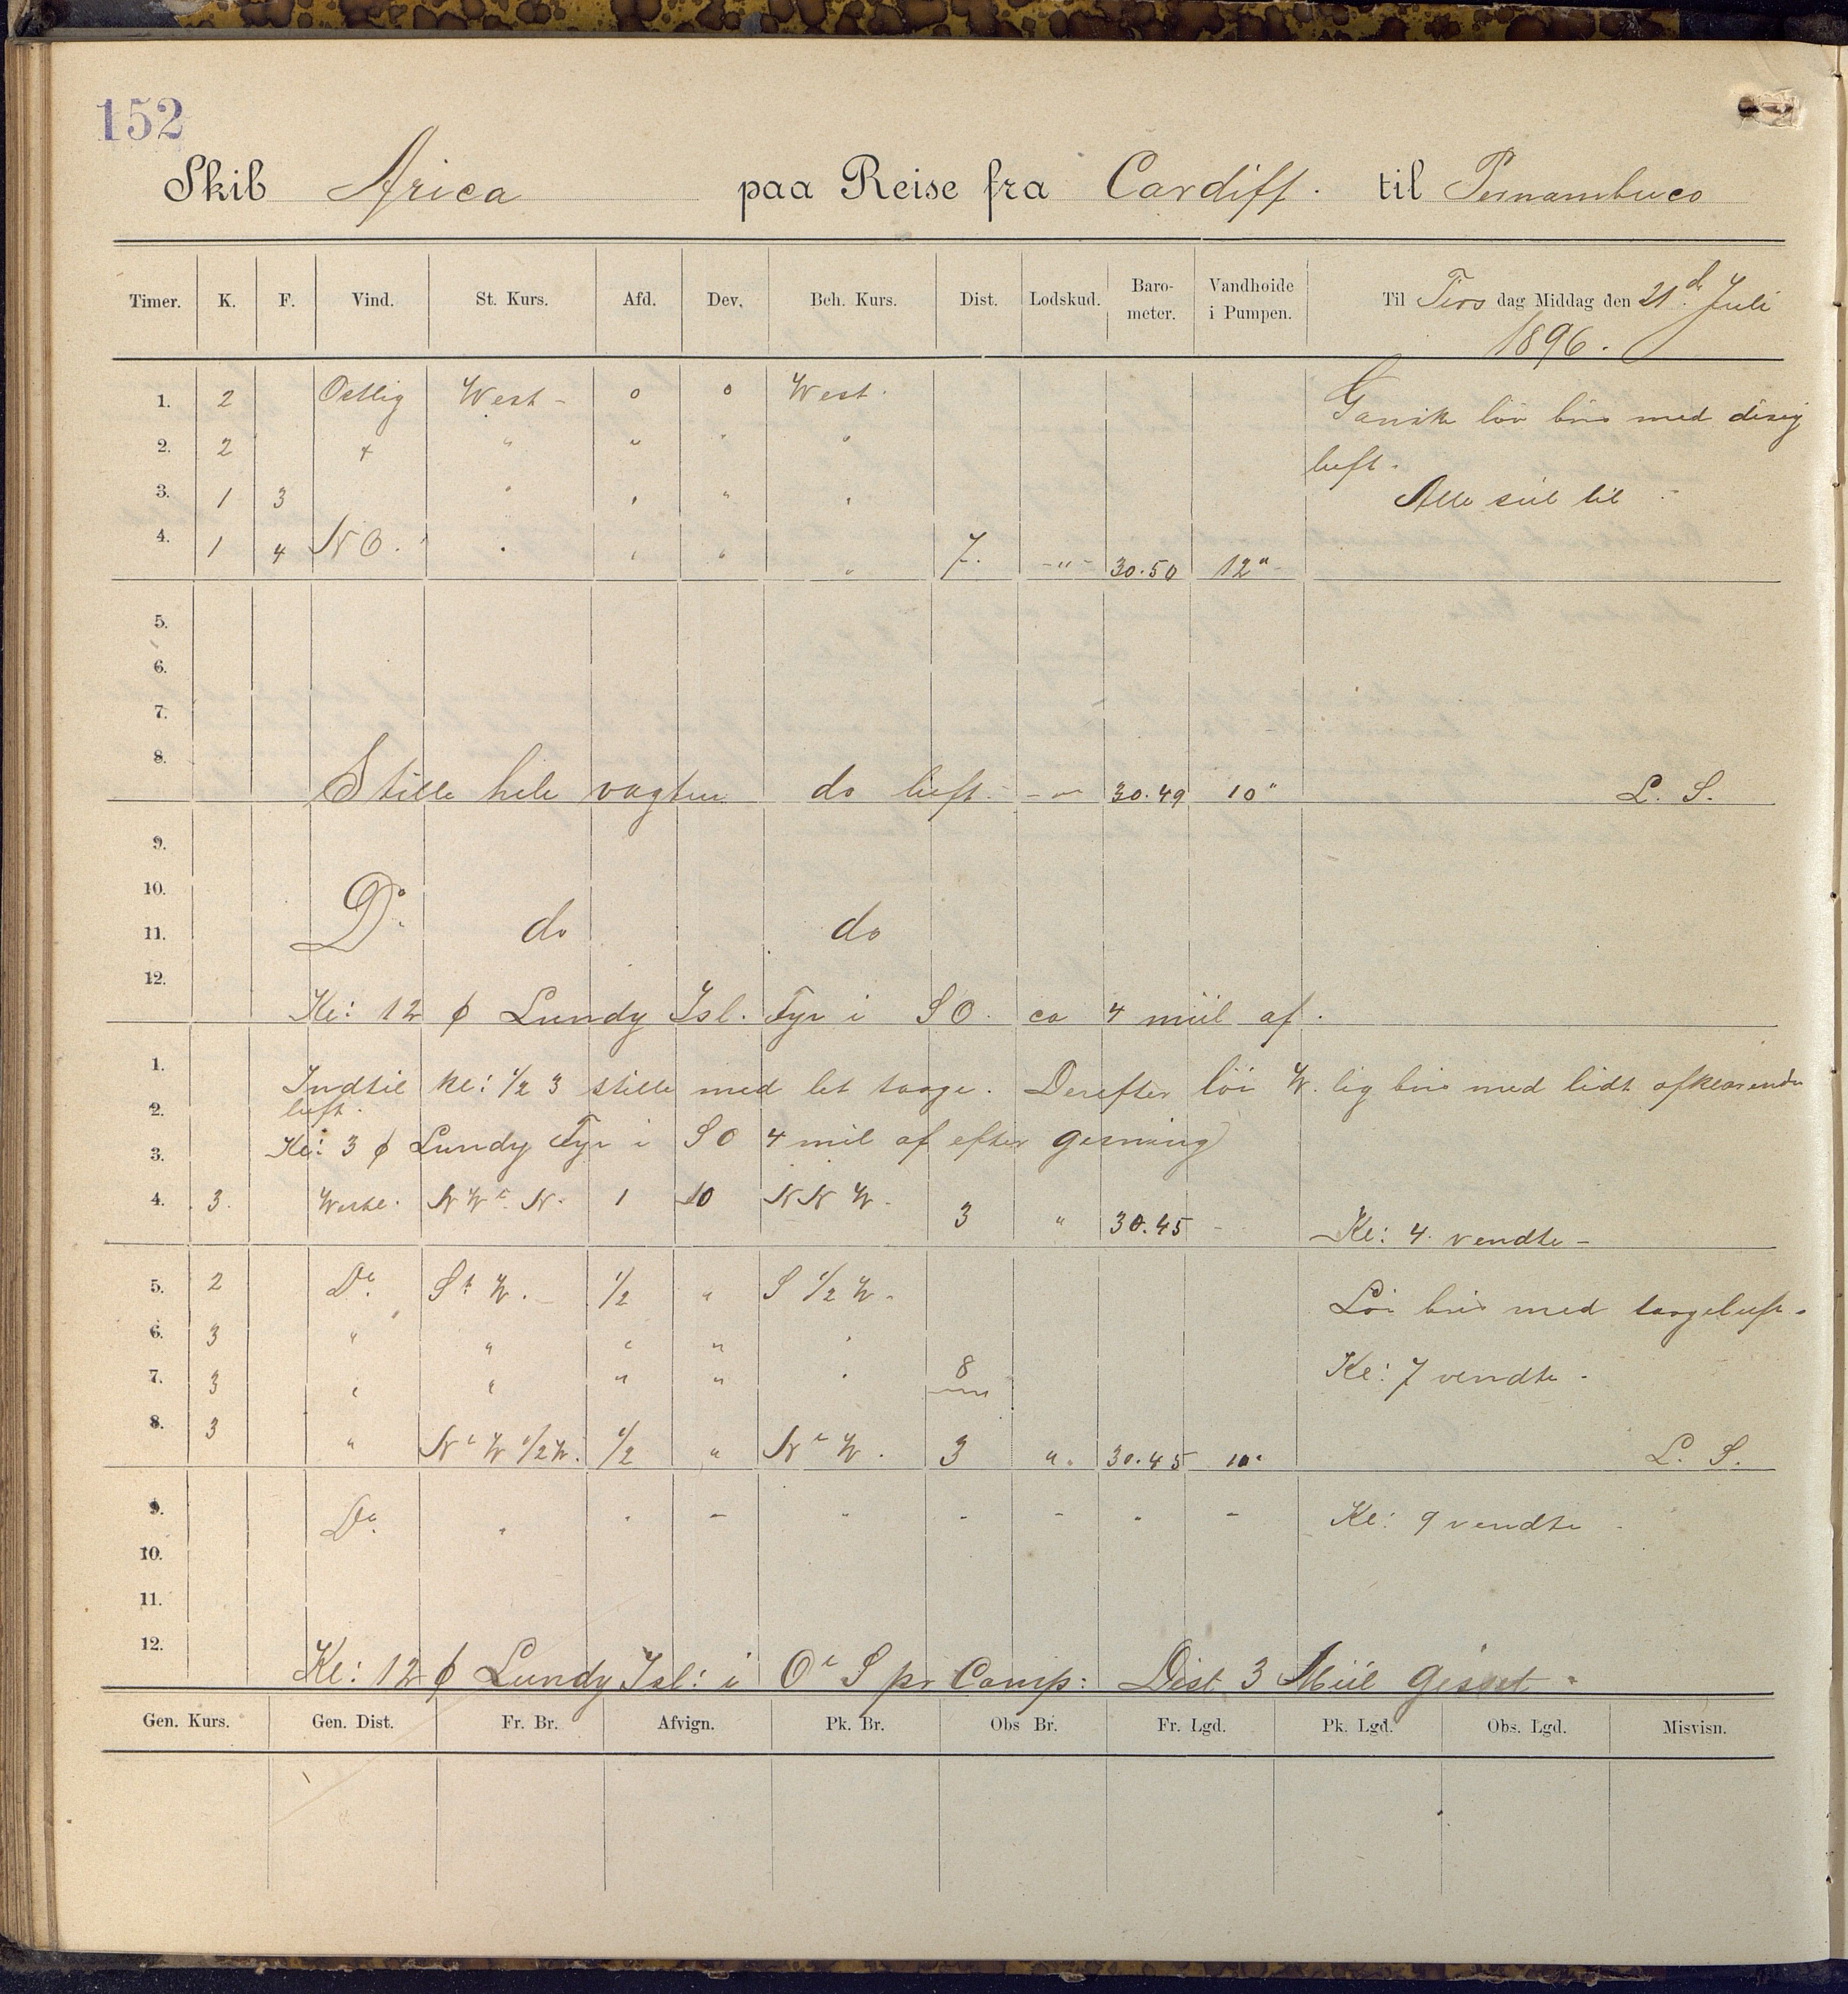 152
Skib Arica paa Reise fra Cardiff. til Pernambuco
Timer. K. F. Vind. St. Kurs. Afd. Dev. Beh. Kurs. Dist. Lodskud. Baro-meter. Vandhoide i Pumpen. Til Tirs dag Middag den 21d. Juli 1896.
1. 2 Ostlig West - 0 0 West. Ganske löi bris med disig
2. 2 " " " " luft.
3. 1 3 " " " " Alle seil til -
4. 1 4 NO. " " " " 7. -"- 30.50 12"
5.
6.
7.
8. Stille hele vagten do luft. -"- 30.49 10" L. S.
9.
10.
11. Do. do do
12. Kl: 12 ϕ Lundy Isl. Fyr i SO. ca 4 miil af.
1. Indtil kl: 1/2 3 stille med let taage. Derefter löi W. lig bris med lidt afklarende
2. luft.
3. Kl: 3 ϕ Lundy Fyr i SO 4 mil af efter gisning
4. 3. Westl. NWt. N. 1 10 NNW. 3 " 30.45 - Kl: 4. vendte -
5. 2 Do. St W. - 1/2 " S 1/2 W. Löi bris med taageluft.
6. 3 " " " " "
7. 3 " " " " " 8 Kl: 7 vendte -
8. 3 " Nt W 1/2 W. 1/2 " Nt W. 3 ". 30.45 10" L. S.
9. Do. " " - " - - " - Kl: 9 vendte -
10.
11.
12. Kl: 12 ϕ Lundy Isl: i Ot S pr Comp: Dist 3 Miil gisset -
Gen. Kurs. Gen. Dist. Fr. Br. Afvign. Pk. Br. Obs Br. Fr. Lgd. Pk. Lgd. Obs. Lgd. Misvisn.